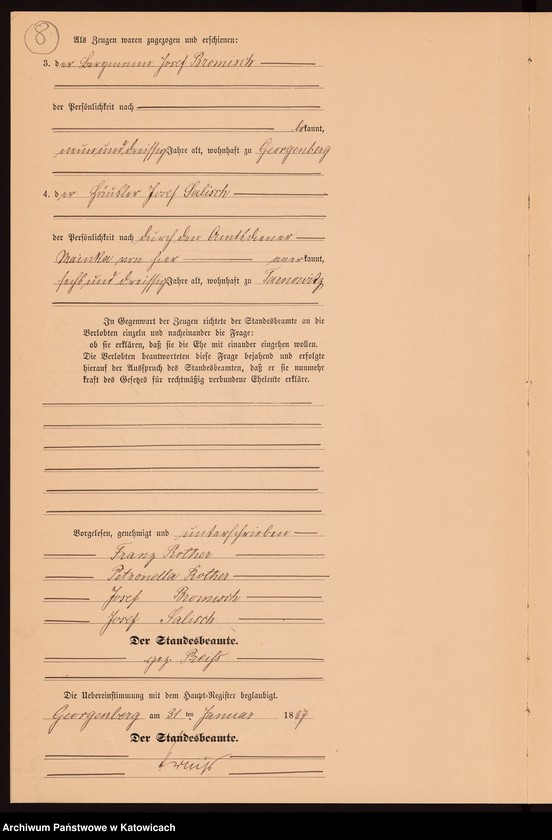 8
Als Zeugen waren zugezogen und erschienen:
3. der Bergmann Josef Bromisch
der Persönlichkeit nach
bekannt,
neunundreissig Jahre alt, wohnhaft zu Georgenberg
4. der Häusler Josef Salisch
der Persönlichkeit nach durch den Amtsdiener
Mainka von hier anerkannt,
sechsunddreissig Jahre alt, wohnhaft zu Tarnowitz
In Gegenwart der Zeugen richtete der Standesbeamte an die
Verlobten einzeln und nacheinander die Frage:
ob sie erklären, daß sie die Ehe mit einander eingehen wollen.
Die Verlobten beantworteten diese Frage bejahend und erfolgte
hierauf der Ausspruch des Standesbeamten, daß er sie nunmehr
kraft des Gesetzes für rechtmäßig verbundene Eheleute erkläre.
Vorgelesen, genehmigt und unterschrieben
Franz Rother
Petronella Rother
Josef Bromisch
Josef Salisch
Der Standesbeamte.
gez. Preiß
Die Uebereinstimmung mit dem Haupt-Register beglaubigt.
Georgenberg am 31 ten Januar 1887
Der Standesbeamte.
Preiß
Archiwum Państwowe w Katowicach